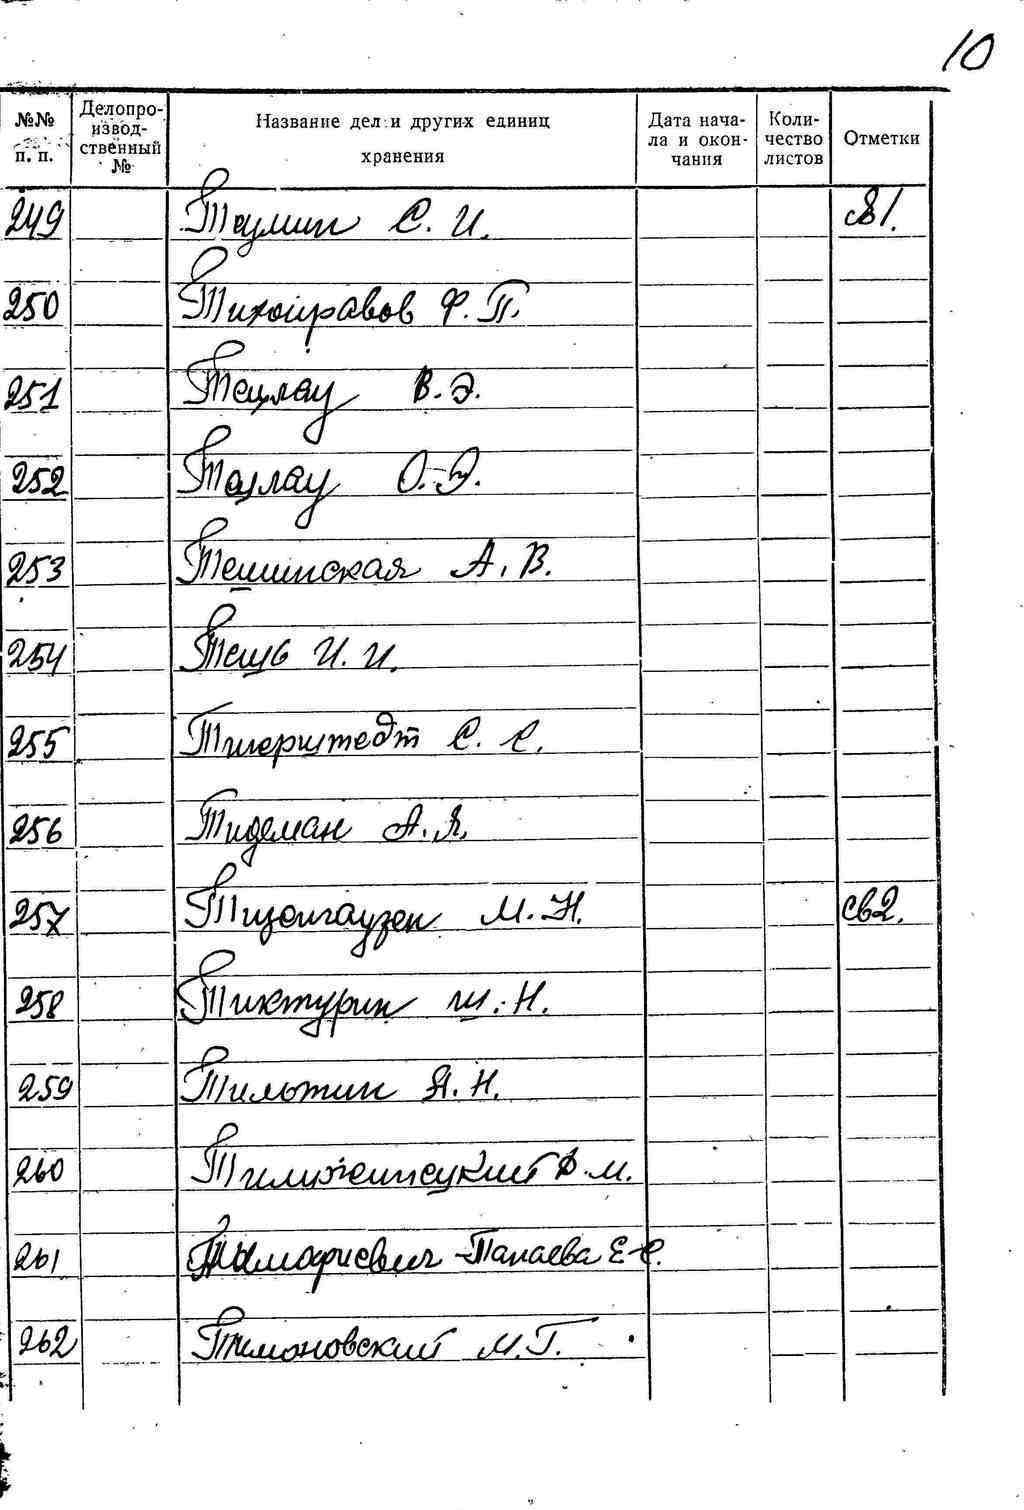 10
№№ п. п. Делопроизвод-ственный № Название дел и других единиц хранения Дата нача-ла и окон-чания Коли-чество листов Отметки
249 Таумин С. И.
250 Тихонравов Ф. П.
251 Тецлау В. Э.
252 Тецлау О. Э.
253 Тешинская А. В.
254 Тещь И. И.
255 Тигерштедт С. С.
256 Тидеман А. Я.
257 Тизенгаузен М. Н. св2.
258 Тиктурин Ш. Н.
259 Тильтин Я. Н.
260 М.
261 -Папаева Е. С.
262 Тимоновский М. Г.